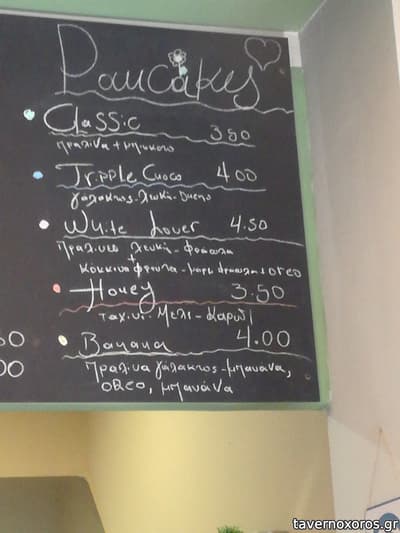 Pancakes
Classic 3.50
πραλίνα + μπισκότο
Tripple Choco 4.00
γάλακτος-λευκή-bueno
White Lover 4.50
Πραλίνα λευκή-φράουλα
+
κόκκινα φρούτα - oreo
Honey 3.50
ταχίνι-Μέλι-Καρύδι
Banana 4.00
Πραλίνα γάλακτος-μπανάνα,
OREO, μπανάνα
50
00
tavernoxoros.gr